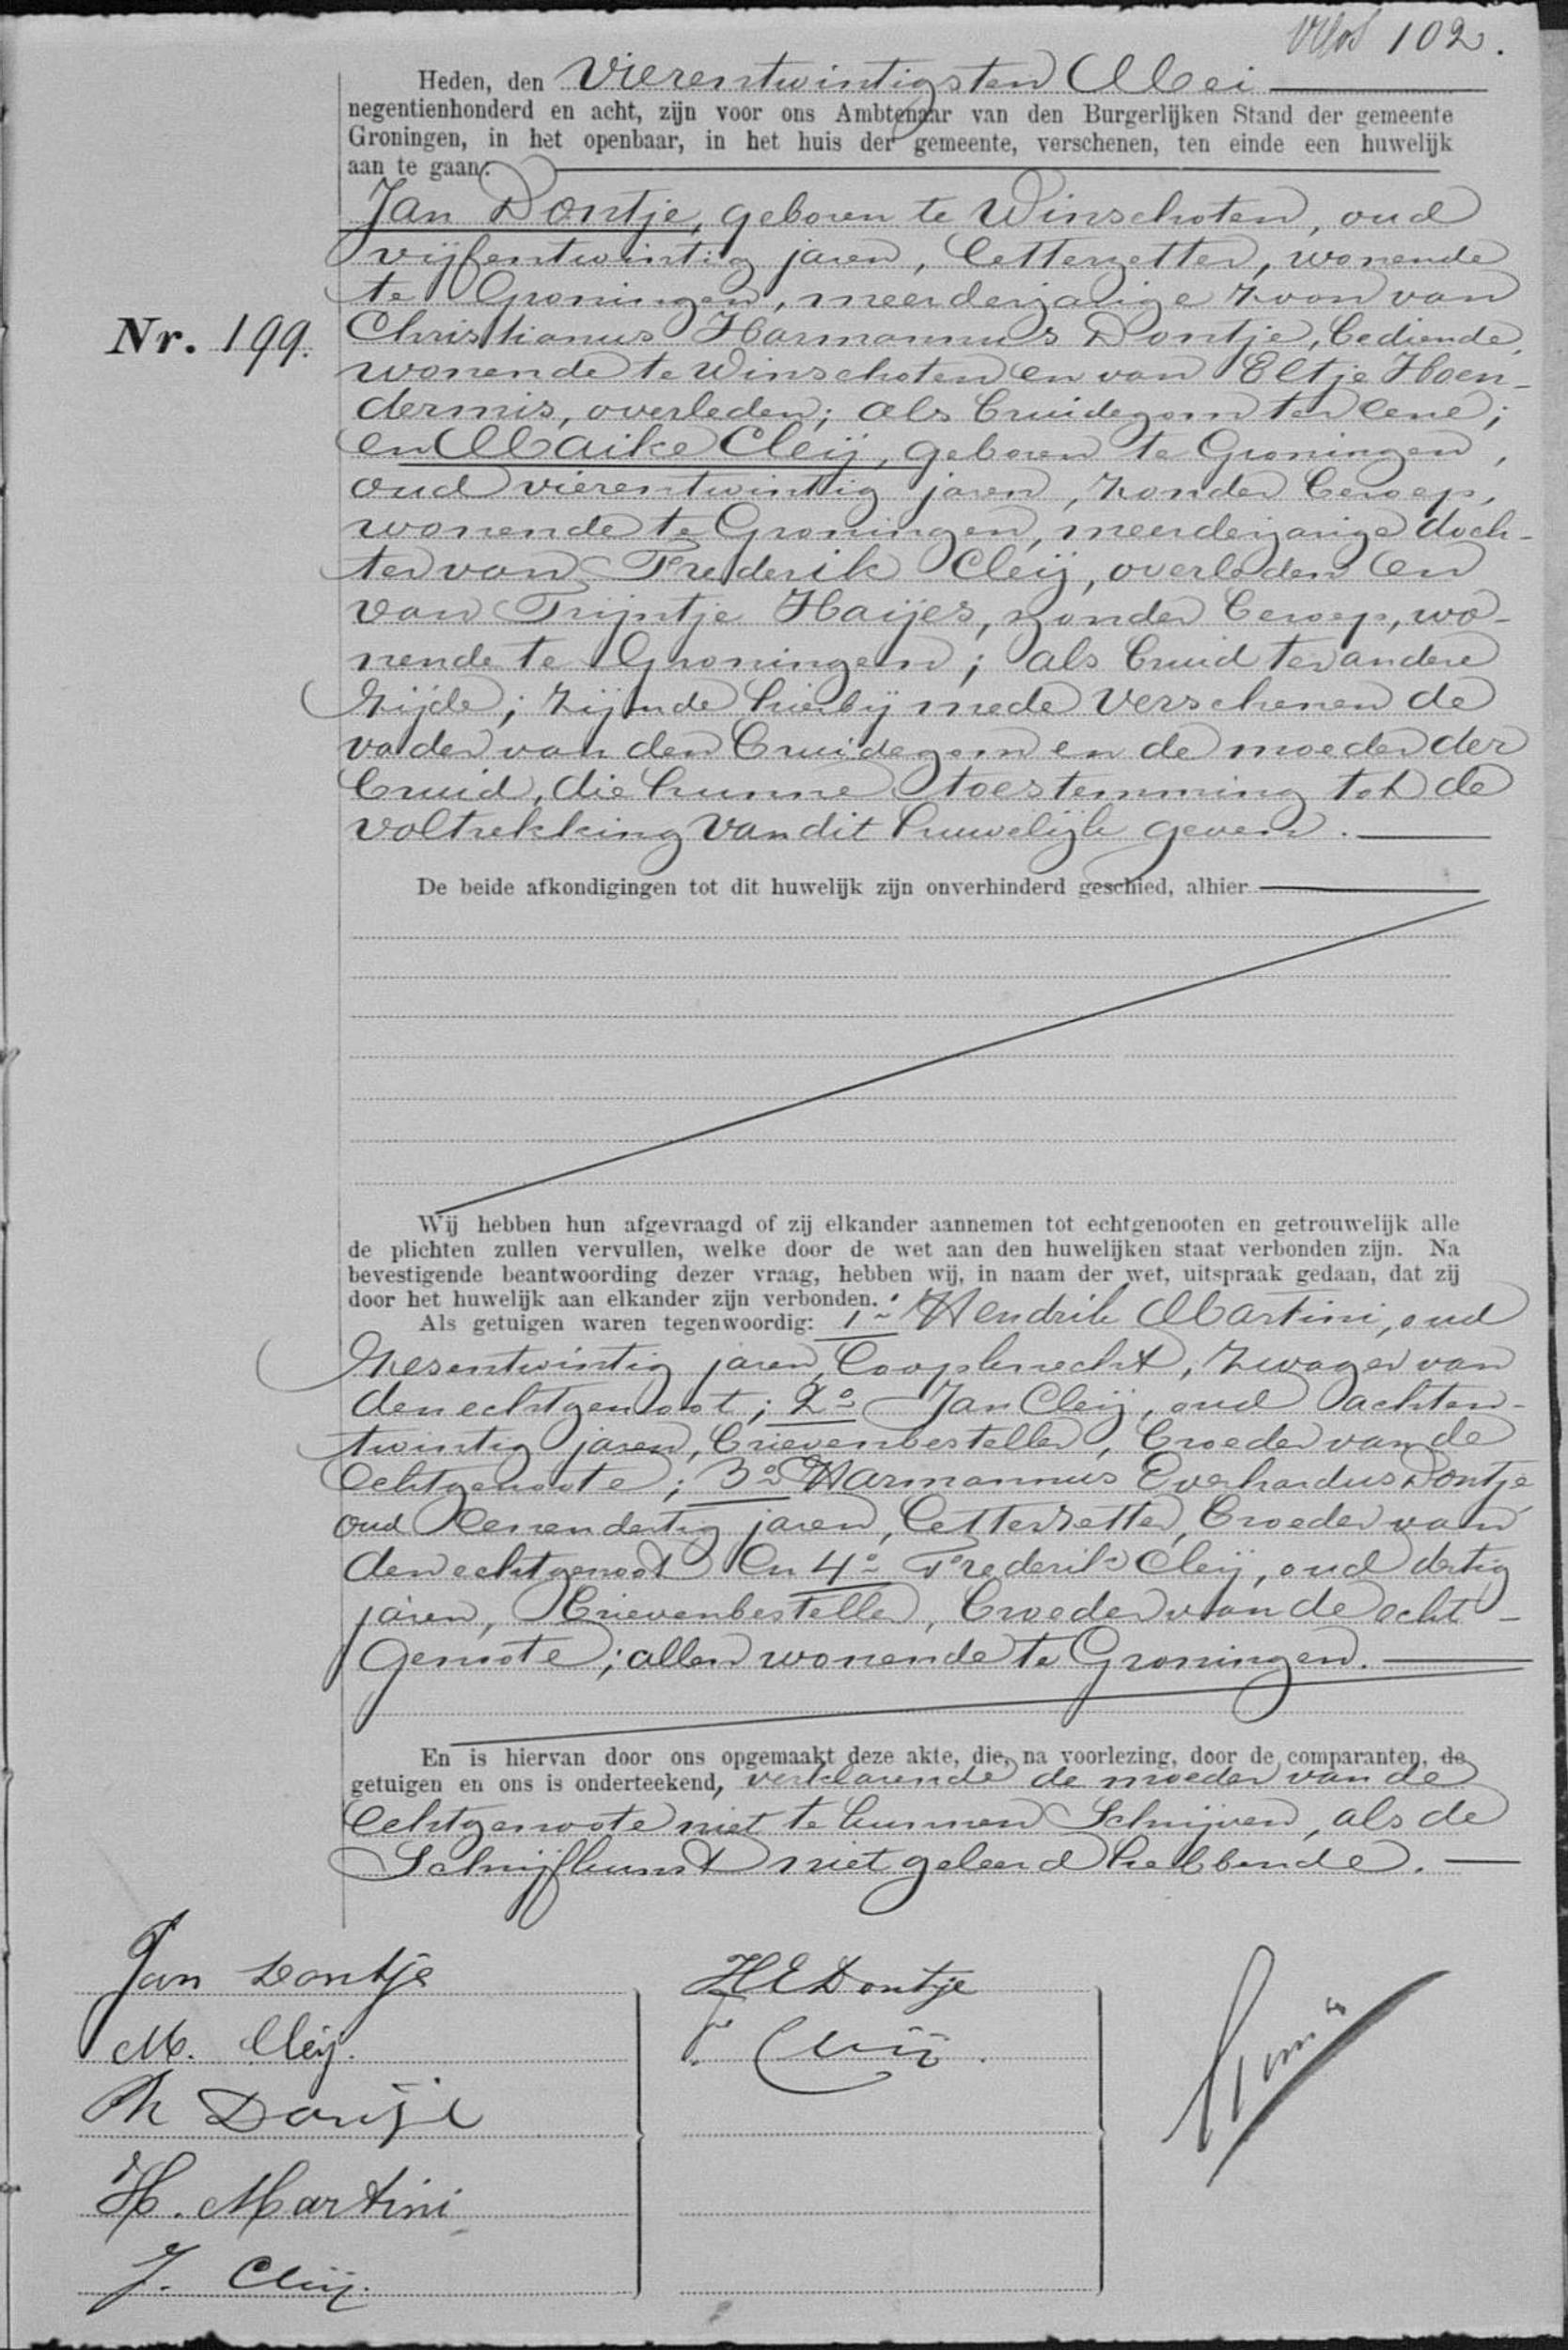 102.
Heden, den vierentwintigsten Mei
negentienhonderd en acht, zijn voor ons Ambtenaar van den Burgerlijken Stand der gemeente
Groningen, in het openbaar, in het huis der gemeente, verschenen, ten einde een huwelijk
aan te gaan:
Jan Dontje, geboren te Winschoten, oud
vijfentwintig jaren, letterzetter, wonende
te Groningen, meerderjarige zoon van
Nr. 199. Christianus Harmannus Dontje, bediende,
wonende te Winschoten en van Eltje Hoen-
dermis, overleden; als bruidegom ter eene;
en Maike Cleij, geboren te Groningen,
oud vierentwintig jaren, zonder beroep,
wonende te Groningen, meerderjarige doch-
ter van Frederik Cleij, overleden en
van Trijntje Haijes, zonder beroep, wo-
nende te Groningen; als bruid ter andere
zijde; zijnde hierbij mede verschenen de
vader van den bruidegom en de moeder der
bruid, die hunne toestemming tot de
voltrekking van dit huwelijk geven.
De beide afkondigingen tot dit huwelijk zijn onverhinderd geschied, alhier
Wij hebben hun afgevraagd of zij elkander aannemen tot echtgenooten en getrouwelijk alle
de plichten zullen vervullen, welke door de wet aan den huwelijken staat verbonden zijn. Na
bevestigende beantwoording dezer vraag, hebben wij, in naam der wet, uitspraak gedaan, dat zij
door het huwelijk aan elkander zijn verbonden.
Als getuigen waren tegenwoordig: 1o Hendrik Martini, oud
zesentwintig jaren, loopknecht, zwager van
den echtgenoot; 2o Jan Cleij, oud achten-
twintig jaren, brievenbesteller, broeder van de
echtgenoote; 3o Harmannus Everhardus Dontje,
oud eenendertig jaren, letterzetter, broeder van
den echtgenoot en 4o Frederik Cleij, oud dertig
jaren, brievenbesteller, broeder van de echt-
genoote; allen wonende te Groningen.
En is hiervan door ons opgemaakt deze akte, die, na voorlezing, door de comparanten, de
getuigen en ons is onderteekend, verklarende de moeder van de
echtgenoote niet te kunnen schrijven, als de
schrijfkunst niet geleerd hebbende.
Jan Dontje
M. Cleij.
Dontje
H. Martini
J. Cleij.
H E Dontje
F. Cleij.